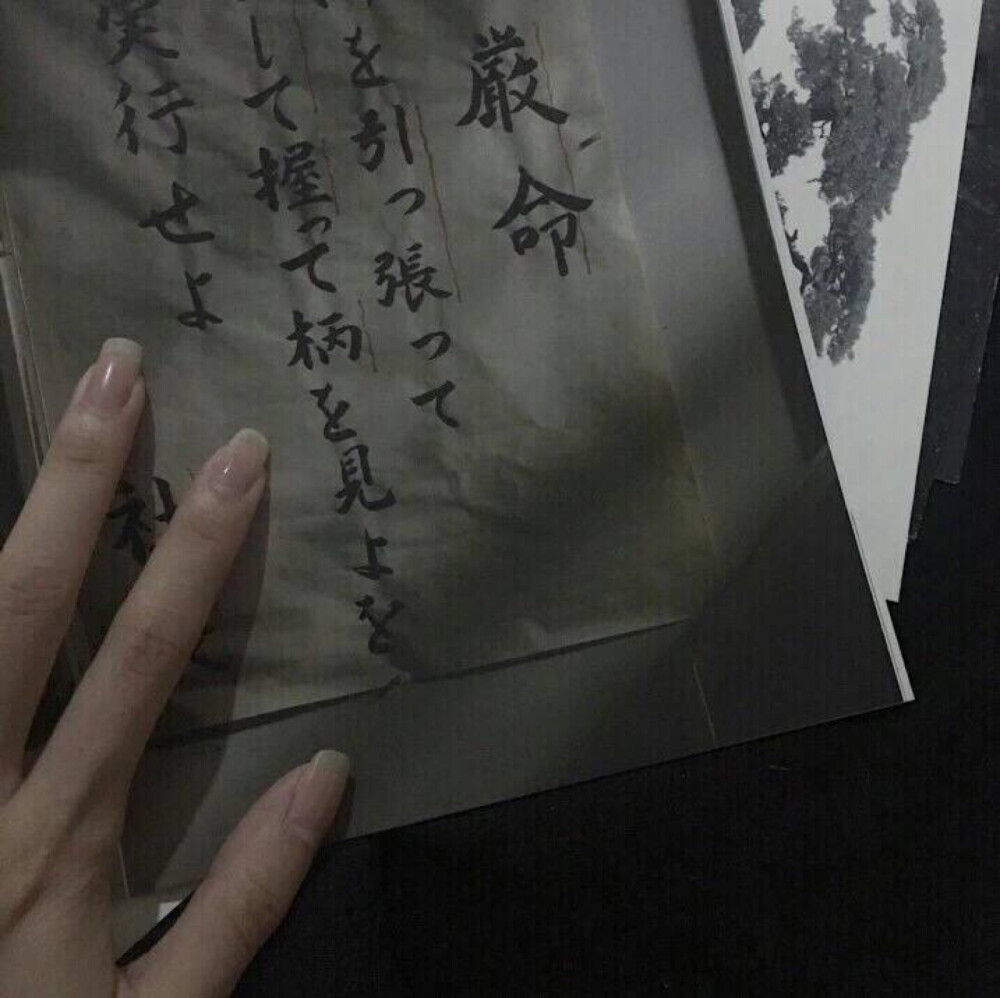 厳命
を引っ張って
して握って柄を見よを
実行せよ
社